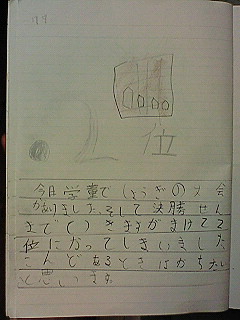 2
位
今日学童でしょうぎの大会
がありました。そして決勝せん
まで（）きますがまけて2
位になってしまいました
こんどあるときはかちたい
と思います。